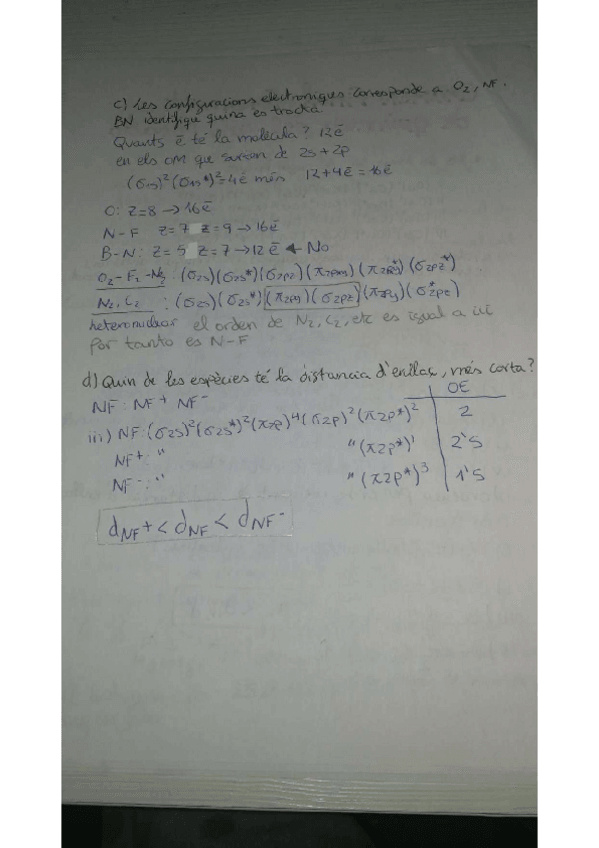 c) Les configuracions electroniques corresponde a O₂, NF.
BN identifique quina es trocka.
Quants ē té la molécula? 12ē
en els OM que surton de 2s+2p
(σ1s)²(σ1s*)²=4ē més 12+4ē=16ē
O: Z=8 → 16ē
N-F Z=7 Z=9 → 16ē
B-N: Z=5 Z=7 → 12ē ← No
O₂-F₂-Ne₂ : (σ2s)(σ2s*)(σ2pz)(π2pxy)(π2pxy*)(σ2pz*)
N₂, C₂ : (σ2s)(σ2s*)(π2pxy)(σ2pz)(π*2pxy)(σ*2pz)
heteronuclear el orden de N₂, C₂, etc es igual a iii
por tanto es N-F
d) Quin de les espècies té la distancia d'enllaç, més corta?
NF: NF⁺ NF⁻ OE
iii) NF:(σ2s)²(σ2s*)²(π2p)⁴(σ2p)²(π2p*)² 2
NF⁺: " " (π2p*)¹ 2'5
NF⁻: " " (π2p*)³ 1'5
dNF⁺ < dNF < dNF⁻